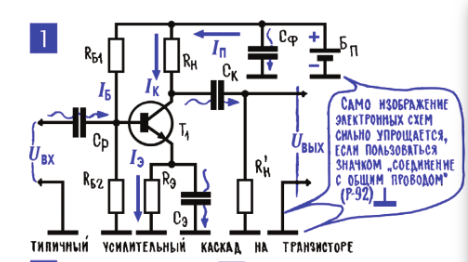 1
RБ1
IБ
RН
IК
IП
CФ
+
−
БП
CК
CР
UВХ
T1
IЭ
RБ2
RЭ
CЭ
R'Н
UВЫХ
САМО ИЗОБРАЖЕНИЕ
ЭЛЕКТРОННЫХ СХЕМ
СИЛЬНО УПРОЩАЕТСЯ,
ЕСЛИ ПОЛЬЗОВАТЬСЯ
ЗНАЧКОМ „СОЕДИНЕНИЕ
С ОБЩИМ ПРОВОДОМ"
(Р-92)
ТИПИЧНЫЙ УСИЛИТЕЛЬНЫЙ КАСКАД НА ТРАНЗИСТОРЕ